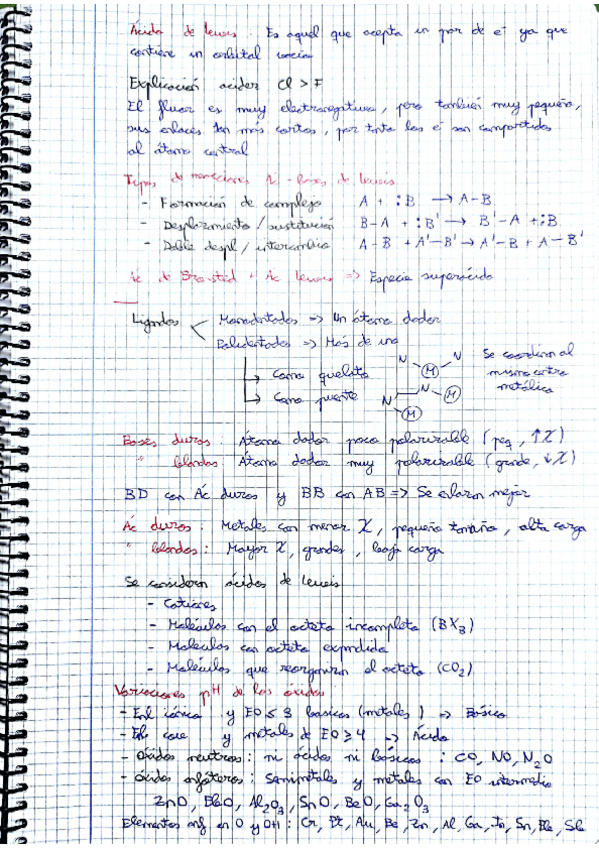 Ácido de Lewis: Es aquel que acepta un par de e⁻ ya que
contiene un orbital vacío
Explicación acidez Cl > F
El fluor es muy electronegativo, pero también muy pequeño,
sus enlaces son más cortos, por tanto los e⁻ son compartidos
al átomo central
Tipos de reacciones Ac - bases de Lewis
- Formación de complejo A + :B → A-B
- Desplazamiento / sustitución B-A + :B' → B'-A + :B
- Doble despl / intercambio A-B + A'-B' → A'-B + A-B'
Ác de Bronsted + Ác Lewis => Especie superácida
Ligandos
Monodentados => Un átomo dador
Polidentados => Más de uno
↳ Como quelato
↳ Como puente
N M N
N N M
M
Se coordinan al
mismo centro
metálico
Bases duras: Átomo dador poco polarizable (peq, ↑χ)
" blandas: Átomo dador muy polarizable (grande, ↓χ)
BD con Ác duros y BB con AB => Se enlazan mejor
Ác duros: Metales con menor χ, pequeño tamaño, alta carga
" blandos: Mayor χ, grandes, baja carga
Se consideran ácidos de Lewis
- Cationes
- Moléculas con el octeto incompleto (BX₃)
- Moléculas con octeto expandido
- Moléculas que reorganizan el octeto (CO₂)
Variaciones pH de los óxidos
- Enl iónico y EO ≤ 3 basicos (metales) => Básico
- Enl cov y metales de EO ≥ 4 => Ácido
- Óxidos neutros: ni ácidos ni básicos: CO, NO, N₂O
- Óxidos anfóteros: Semimetales y metales con EO intermedio
ZnO, PbO, Al₂O₃, SnO, BeO, Ga₂O₃
Elementos anf en O y OH: Cr, Pt, Au, Be, Zn, Al, Ga, In, Sn, Pb, Sb